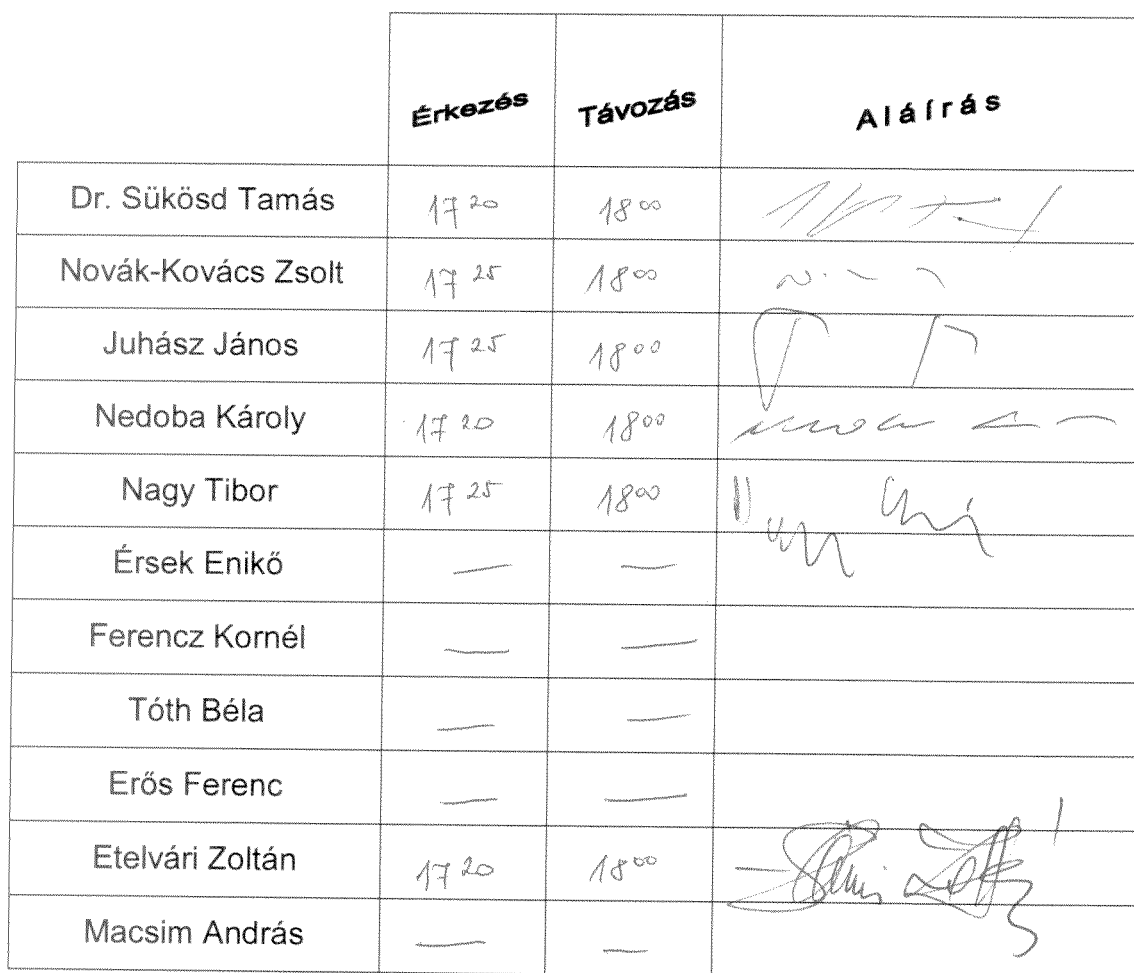 Érkezés Távozás Aláírás
Dr. Sükösd Tamás 17 20 18 00
Novák-Kovács Zsolt 17 25 18 00
Juhász János 17 25 18 00
Nedoba Károly 17 20 18 00
Nagy Tibor 17 25 18 00
Érsek Enikő — —
Ferencz Kornél — —
Tóth Béla — —
Erős Ferenc — —
Etelvári Zoltán 17 20 18 00
Macsim András — —